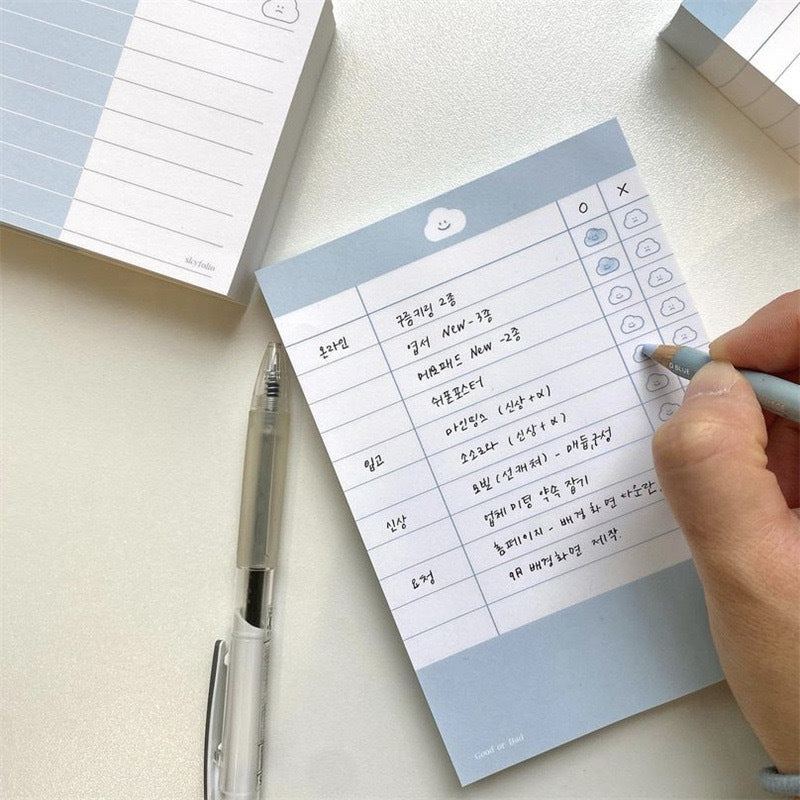 skyfolio
O X
구름키링 2종
온라인 엽서 New - 3종
메모패드 New - 2종
쉬폰포스터
마인띵스 (신상+α)
입고 소소로와 (신상+α)
모빌 (선캐쳐) - 매듭,구성
신상 업체 미팅 약속 잡기
홈페이지 - 배경화면 다운란.
요청 9月 배경화면 제작.
Good or Bad
BLUE